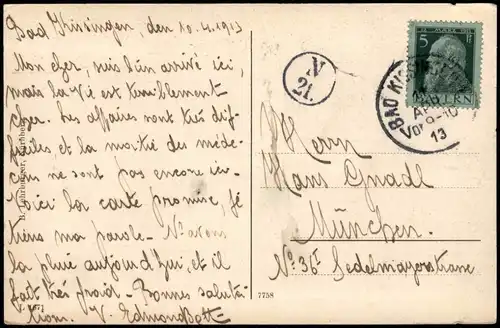 Bad Kissingen, den 10.4.1913
Mon cher, suis bien arrivé ici,
mais la vie est terriblement
cher. Les affaires sont très dif-
ficiles et la moitié des méde-
cins ne sont pas encore ici.
Voici la carte promise, je
tiens ma parole. Nous avons
la pluie aujourd'hui, et il
fait très froid. Bonnes saluta-
tions. V. Edmond
V
21
5 Pf
BAYERN
BAD KISSINGEN
Vor 9-10
13
Herrn
Hans Gnadl
München.
No 36 I Sedelmayerstrasse
7758